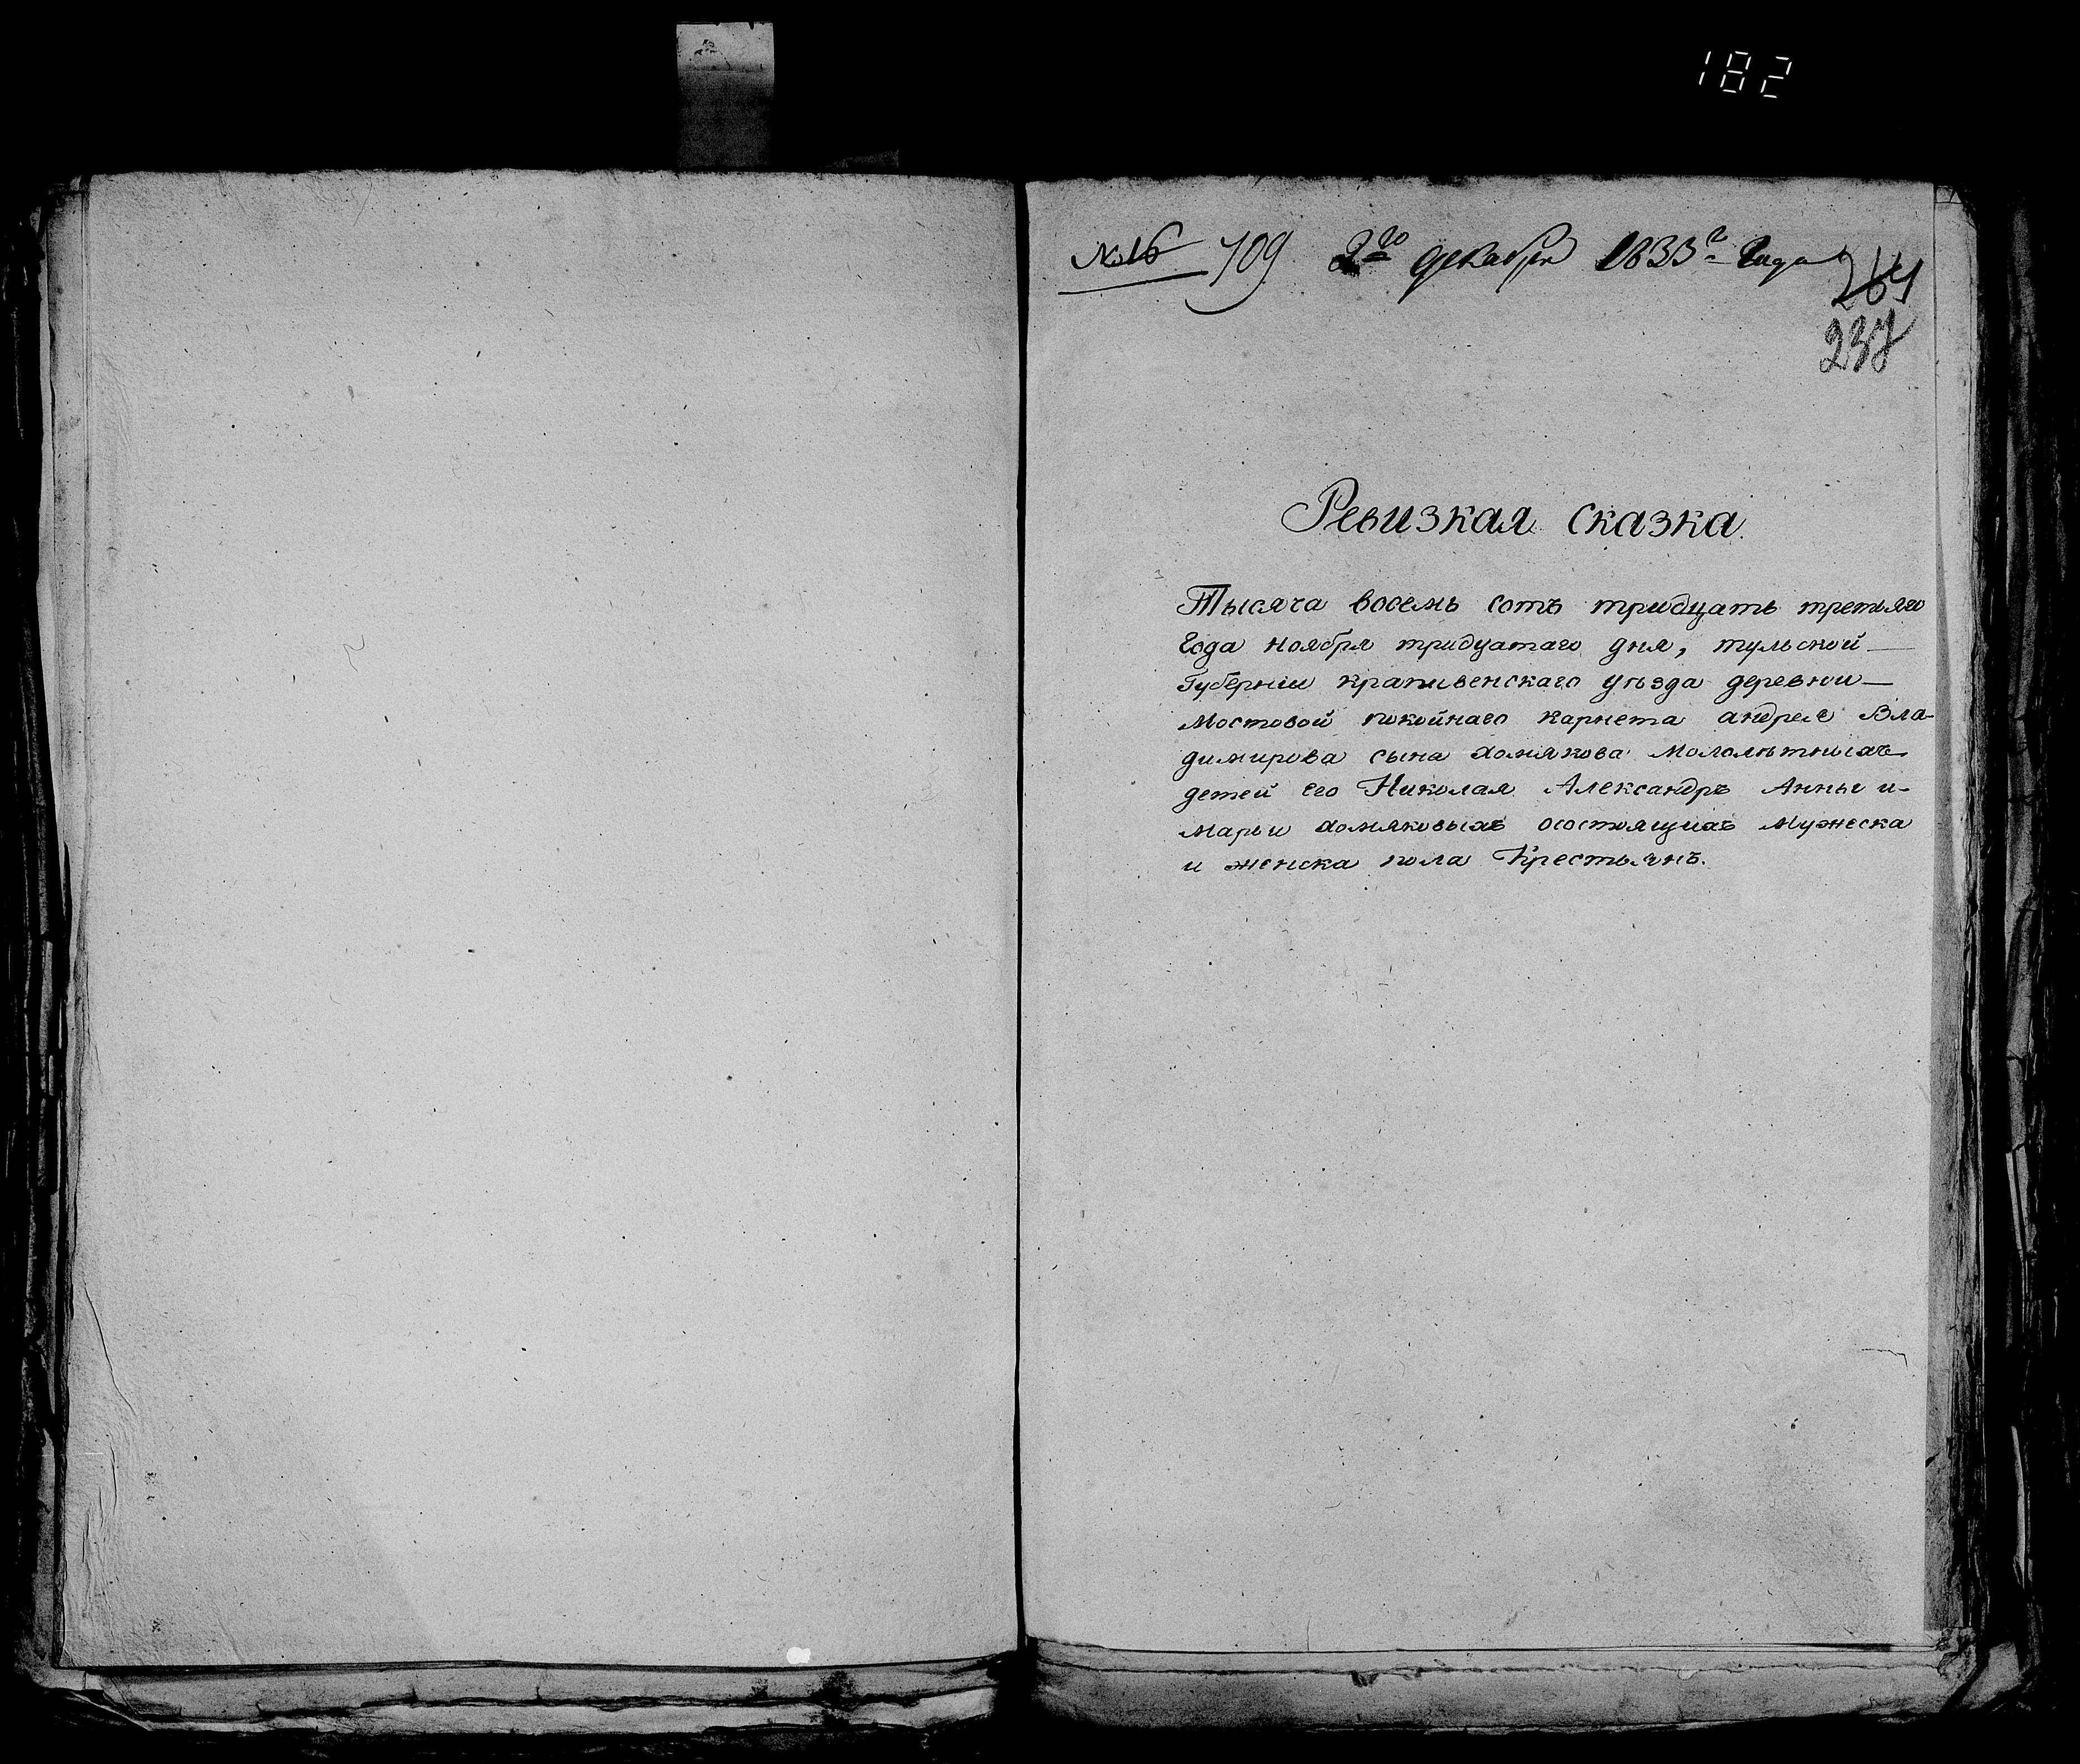 182
№ 16 709 2го декабря 1833г Года
264
237
Ревизкая сказка.
Тысяча восемь сотъ тридцать третьяго
Года ноября тридцатаго дня, тульской
Губерніи крапивенскаго уѣзда деревни
Мостовой покойнаго карнета андрея Вла-
димирова сына хомякова Малолѣтныхъ
детей его Николая Александръ Анны и
Марьи хомяковыхъ осостоящихъ Мужеска
и женска пола Крестьянъ.